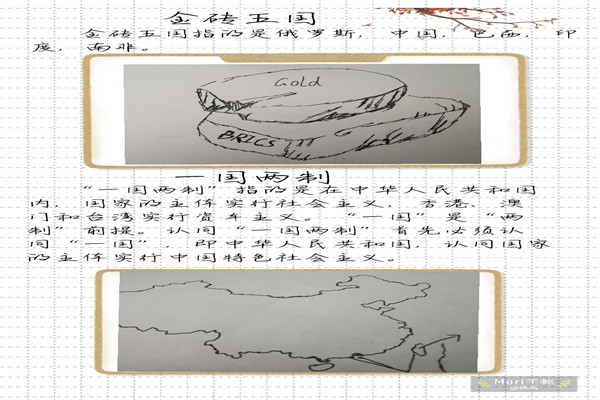 金砖五国
金砖五国指的是俄罗斯，中国，巴西，印
度，南非。
Gold
BRICS
G
一国两制
“一国两制”指的是在中华人民共和国
内，国家的主体实行社会主义，香港、澳
门和台湾实行资本主义。“一国”是“两
制”前提。认同“一国两制”首先必须认
同“一国”，即中华人民共和国，认同国家
的主体实行中国特色社会主义。
Mori手帐